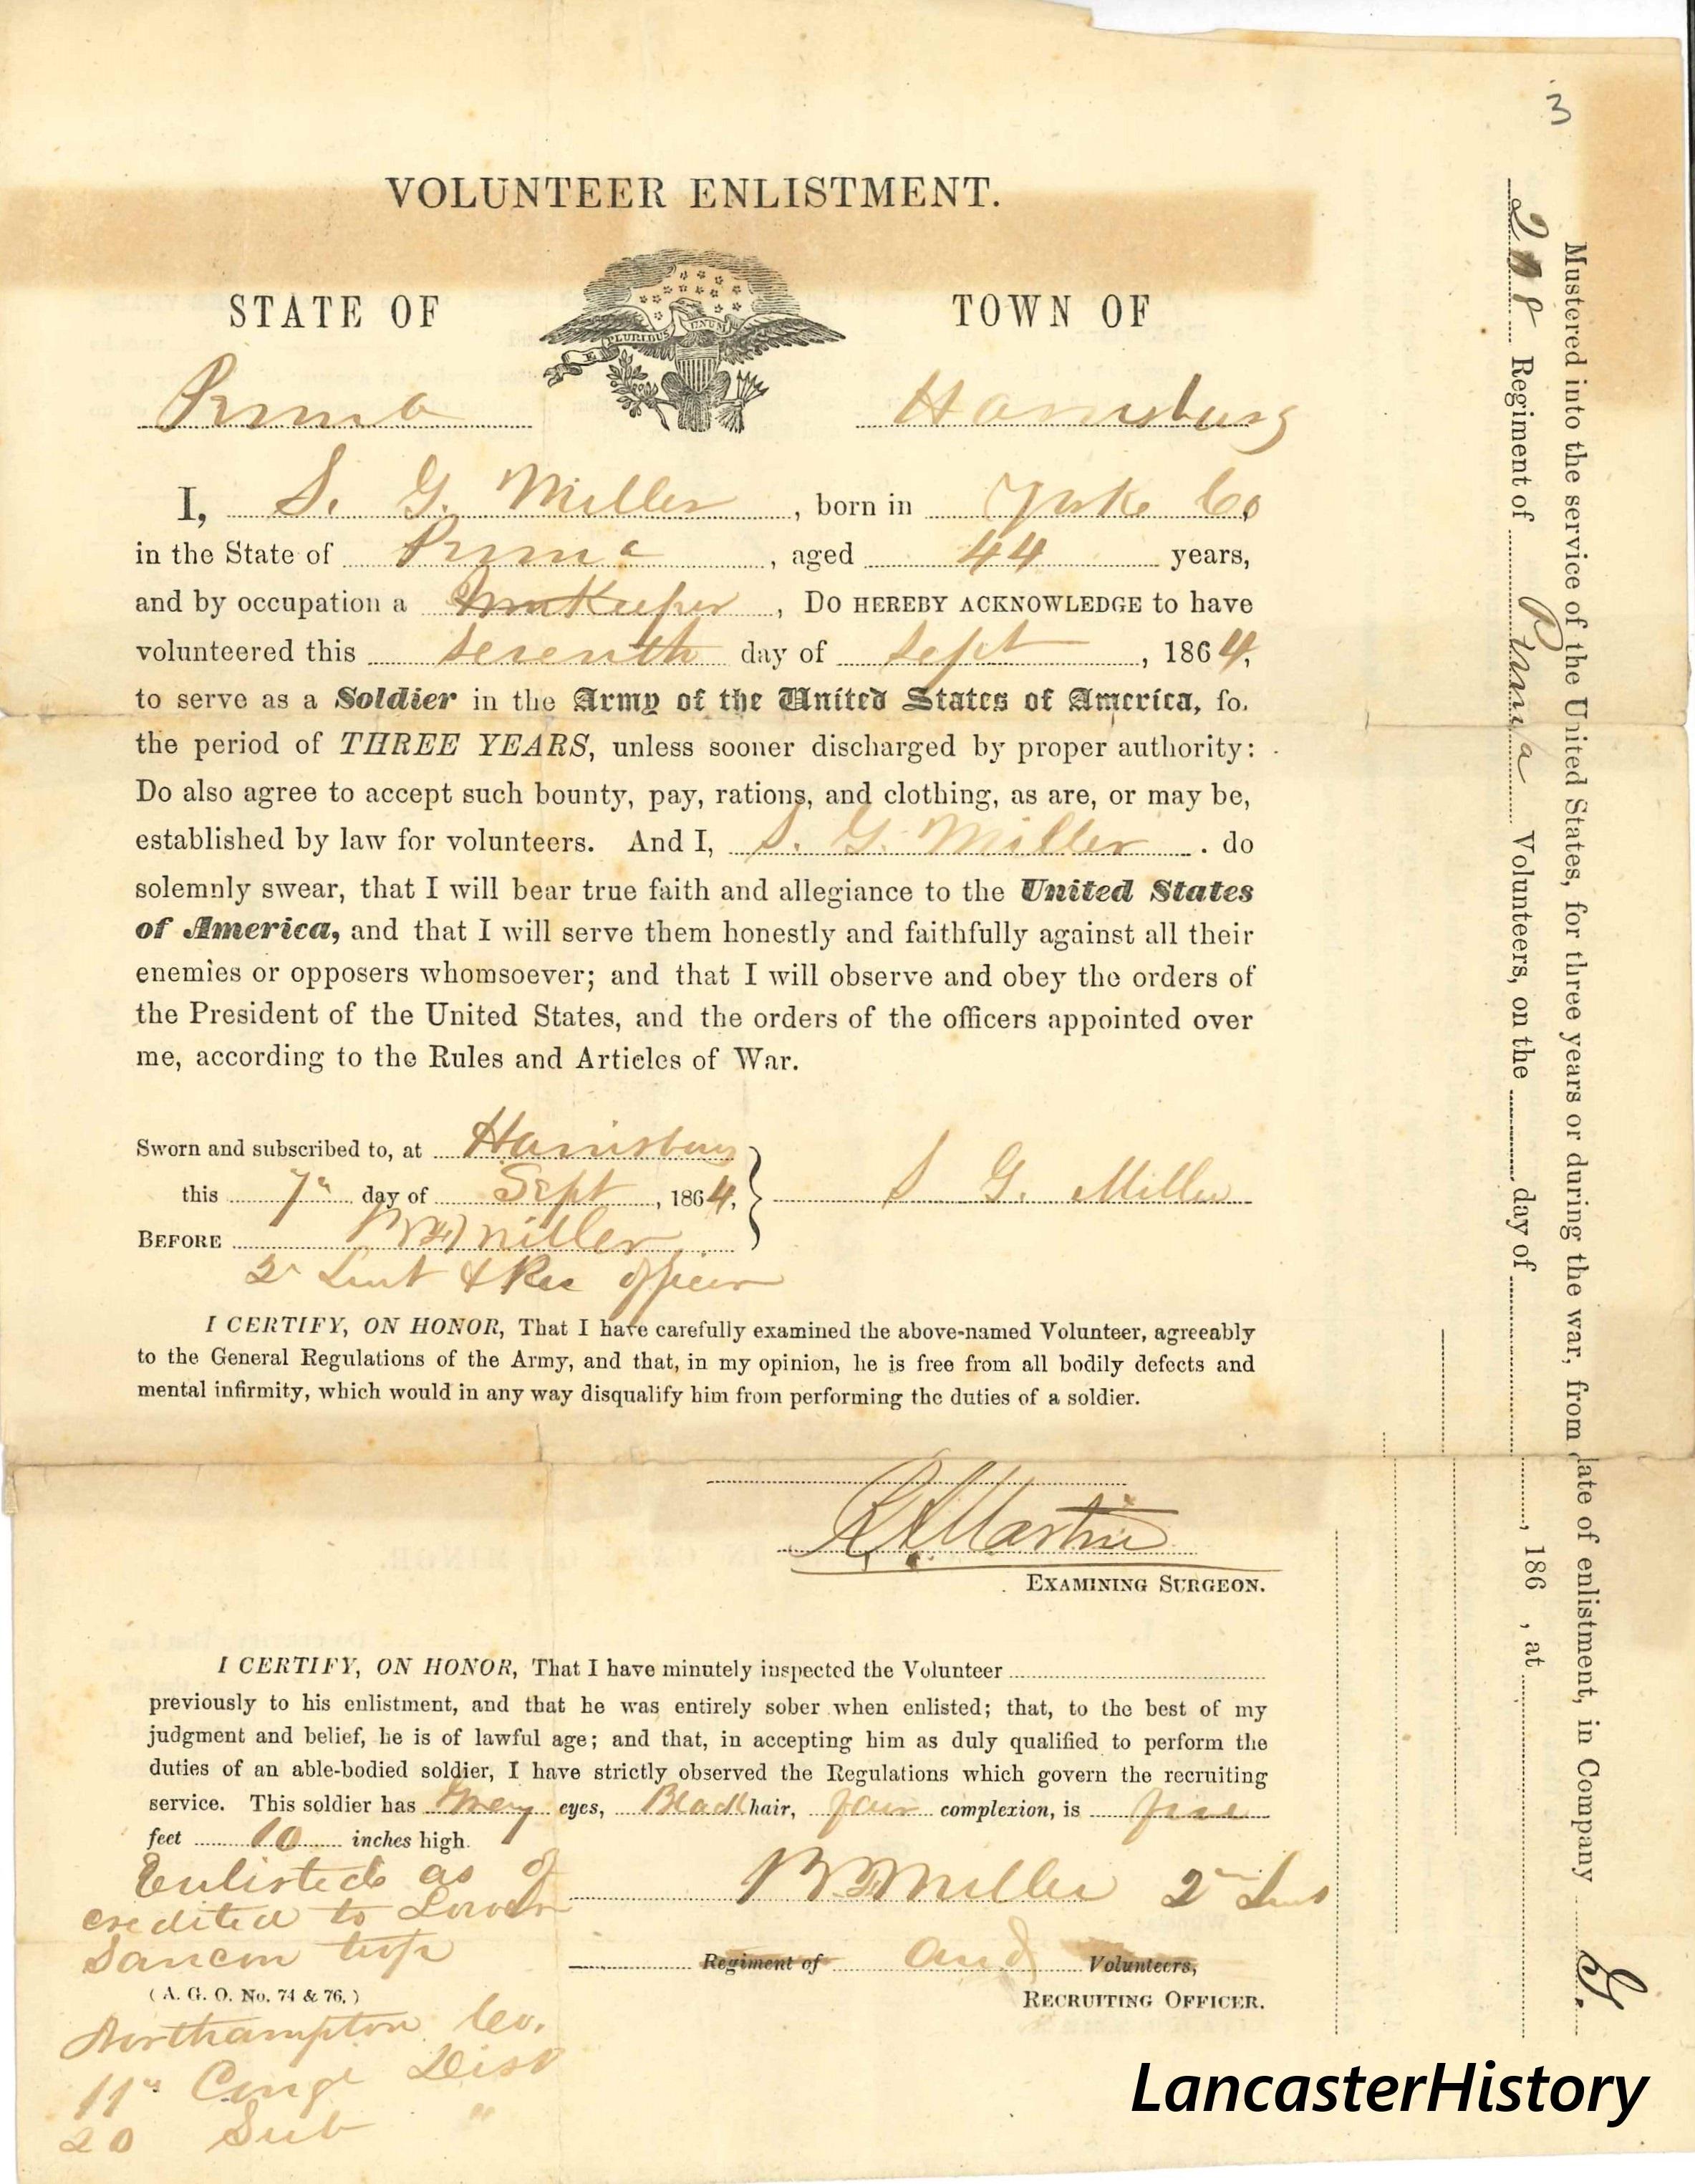 3
VOLUNTEER ENLISTMENT.
STATE OF
TOWN OF
E PLURIBUS UNUM
Penna
Harrisburg
I, S. G. Miller, born in York Co
in the State of Penna, aged 44 years,
and by occupation a InnKeeper, DO HEREBY ACKNOWLEDGE to have
volunteered this seventh day of Sept, 1864,
to serve as a Soldier in the Army of the United States of America, fo.
the period of THREE YEARS, unless sooner discharged by proper authority:
Do also agree to accept such bounty, pay, rations, and clothing, as are, or may be,
established by law for volunteers. And I, S. G. Miller . do
solemnly swear, that I will bear true faith and allegiance to the United States
of America, and that I will serve them honestly and faithfully against all their
enemies or opposers whomsoever; and that I will observe and obey the orders of
the President of the United States, and the orders of the officers appointed over
me, according to the Rules and Articles of War.
Sworn and subscribed to, at Harrisburg
this 7th day of Sept, 1864,
S G. Miller
BEFORE Miller
2d Lieut & Rec officer
I CERTIFY, ON HONOR, That I have carefully examined the above-named Volunteer, agreeably
to the General Regulations of the Army, and that, in my opinion, he is free from all bodily defects and
mental infirmity, which would in any way disqualify him from performing the duties of a soldier.
Martin
EXAMINING SURGEON.
I CERTIFY, ON HONOR, That I have minutely inspected the Volunteer
previously to his enlistment, and that he was entirely sober when enlisted; that, to the best of my
judgment and belief, he is of lawful age; and that, in accepting him as duly qualified to perform the
duties of an able-bodied soldier, I have strictly observed the Regulations which govern the recruiting
service. This soldier has Grey eyes, Black hair, fair complexion, is five
feet 10 inches high.
Enlisted as of
credited to Lower
Saucon twp
Miller 2d Lieut
Regiment of and Volunteers,
RECRUITING OFFICER.
(A. G. O. No. 74 & 76.)
Northampton Co.
11th Congl Dist
20 Sub "
Mustered into the service of the United States, for three years or during the war, from date of enlistment, in Company G.
208 Regiment of Penna Volunteers, on the day of , 186 , at
LancasterHistory